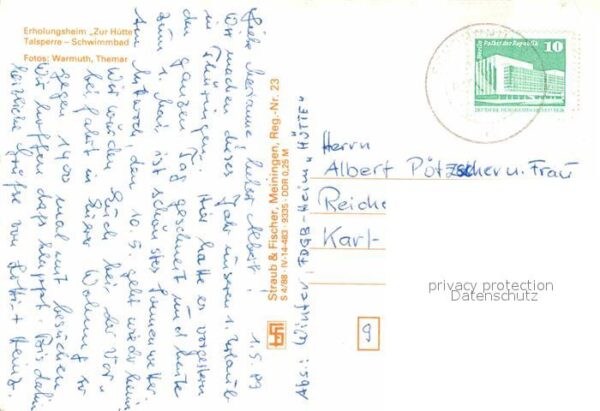 Erholungsheim „Zur Hütte
Talsperre – Schwimmbad
Fotos: Warmuth, Themar
1.5.89
Liebe Marianne! Lieber Albert!
Wir machen dieses Jahr unseren 1. Urlaub
in Thüringen. Hier hatte es vorgestern
den ganzen Tag geschneit und heute
zum 1. Mai ist schönstes Sonnenwetter.
Am Mittwoch, den 10.5. geht's wieder heim.
Wir würden Euch bei der Vor-
beifahrt in Eurer Wohnung so
gegen 19.00 mal mit besuchen.
Wir hoffen, dass klappt. Bis dahin
herzliche Grüße von Lothar + Heinz.
Straub & Fischer, Meiningen, Reg.-Nr. 23
S 4/88 · IV-14-483 · 9335 · DDR 0,25 M
Abs.: Winter, FDGB-Heim „HÜTTE"
Palast der Republik
10
Herrn
Albert Pötzscher u. Frau
Reiche
Karl-
9
privacy protection
Datenschutz